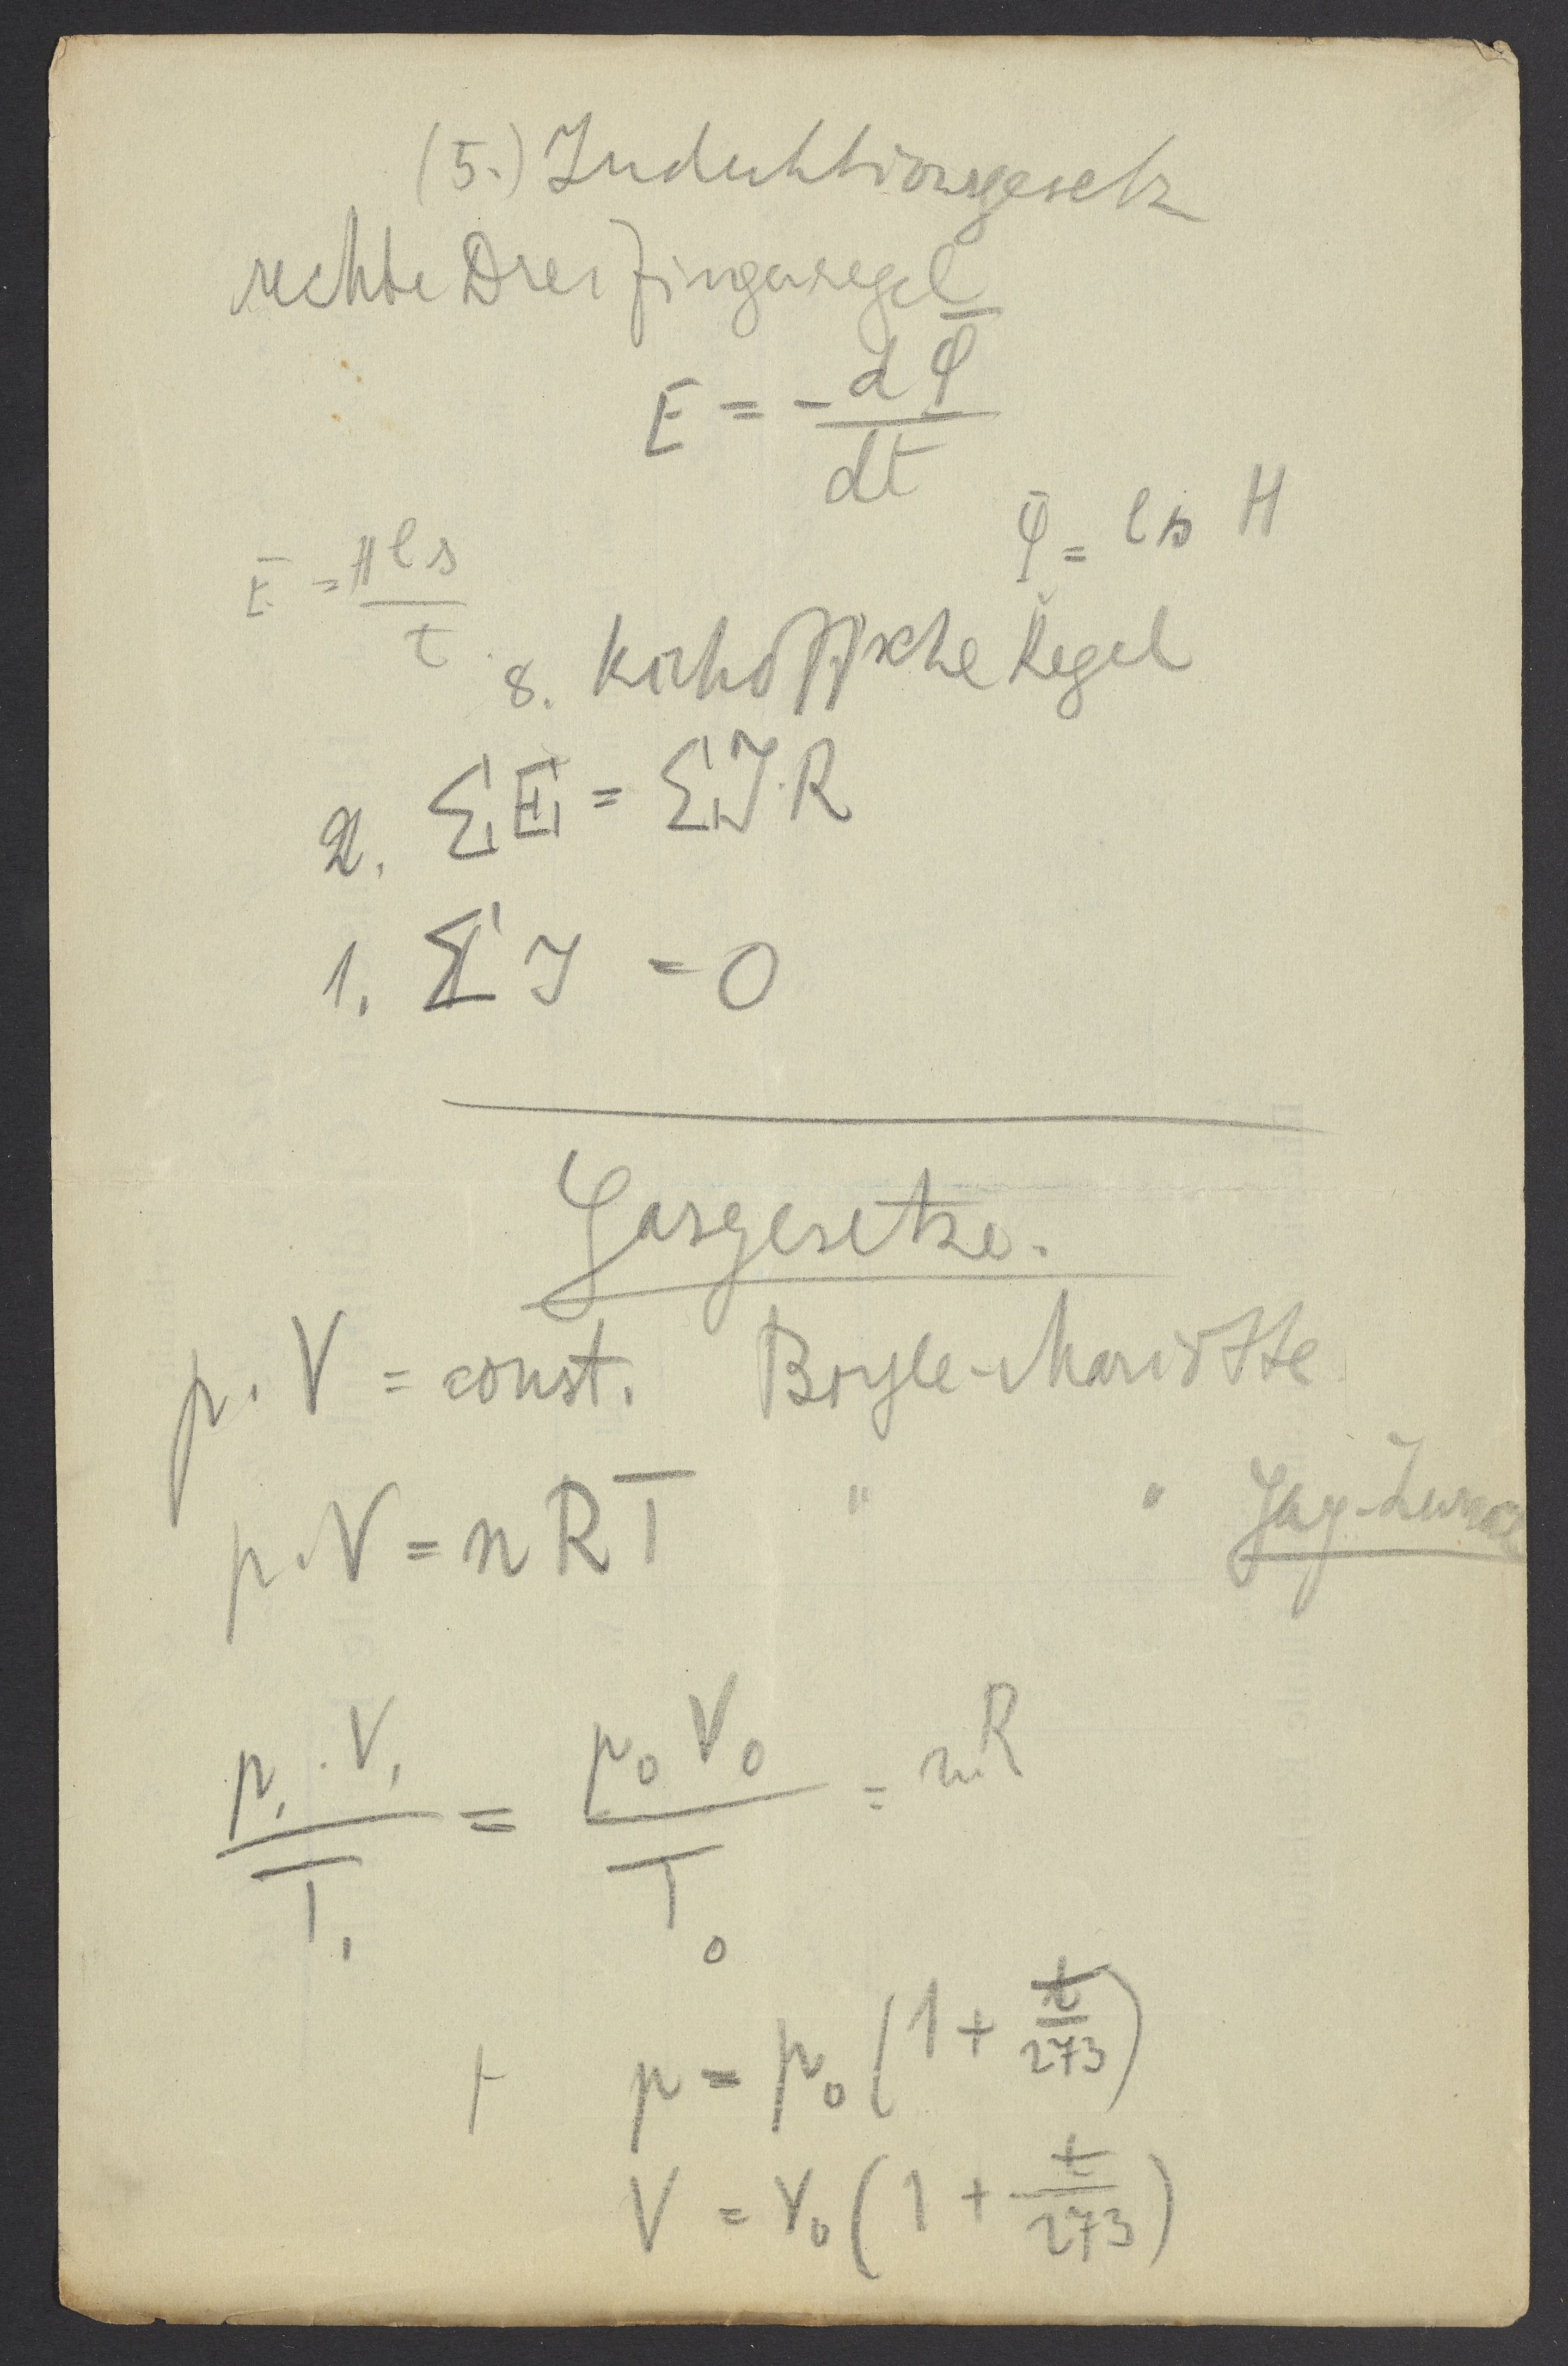 (5.) Induktionsgesetz
rechte Dreifingerregel
E = - dΦ / dt
Φ = l s H
E = H l s / t
8. Kirhoffsche Regel
2. ΣE = ΣJ·R
1. ΣJ = 0
Gasgesetze.
p · V = const. Boyle-Mariotte
p · V = n R T " " Gay-Lussac
p₁ · V₁ / T₁ = p₀ V₀ / T₀ = nR
p = p₀ (1 + t/273)
V = V₀ (1 + t/273)